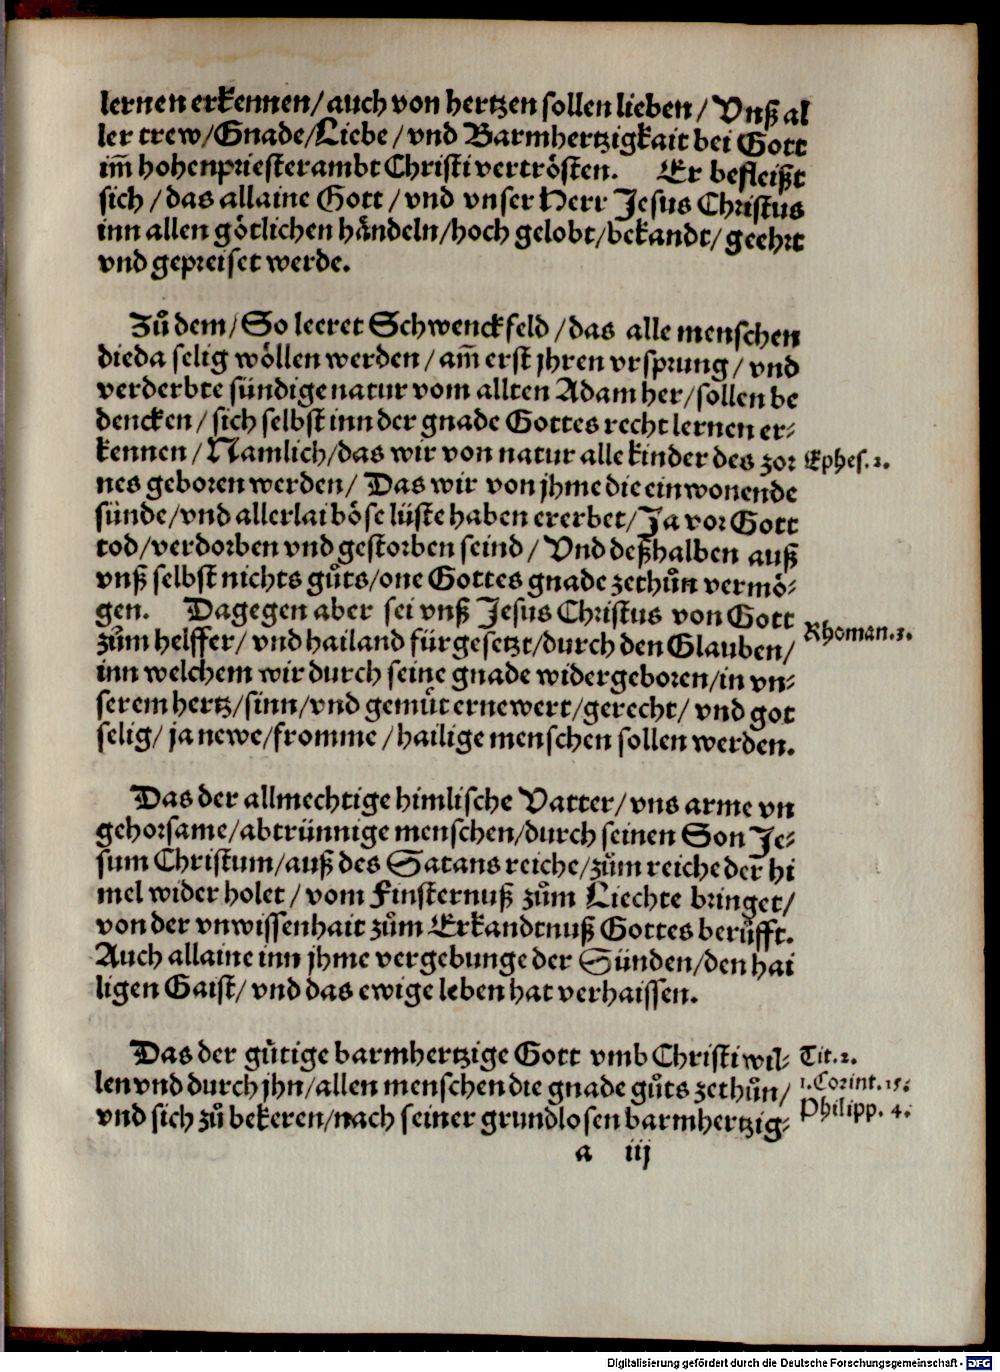 lernen erkennen/auch von hertzen sollen lieben/ Vnß al
ler trew/Gnade/Liebe/vnd Barmhertzigkait bei Gott
im̅ hohenpriesterambt Christi vertrösten. Er befleißt
sich/das allaine Gott/vnd vnser Herr Jesus Christus
inn allen götlichen håndeln/hoch gelobt/bekandt/geehrt
vnd gepreiset werde.
Zů dem/So leeret Schwenckfeld/das alle menschen
dieda selig wöllen werden/am̅ erst jhren vrsprung/vnd
verderbte sündige natur vom allten Adam her/sollen be
dencken/sich selbst inn der gnade Gottes recht lernen er⸗
kennen/Namlich/das wir von natur alle kinder des zor
Ephes. 2.
nes geboren werden/ Das wir von jhme die einwonende
sünde/vnd allerlai böse lüste haben ererbet/Ja vor Gott
tod/verdorben vnd gestorben seind/ Vnd deßhalben auß
vnß selbst nichts gůts/one Gottes gnade zethůn vermö⸗
gen. Dagegen aber sei vnß Jesus Christus von Gott
Rhoman. 3.
zům helffer/vnd hailand fürgesetzt/durch den Glauben/
inn welchem wir durch seine gnade widergeboren/in vn⸗
serem hertz/sinn/vnd gemüt ernewert/gerecht/vnd got
selig/ja newe/fromme/hailige menschen sollen werden.
Das der allmechtige himlische Vatter/vns arme vn
gehorsame/abtrünnige menschen/durch seinen Son Je⸗
sum Christum/auß des Satans reiche/zům reiche der hi
mel wider holet/vom Finsternuß zům Liechte bringet/
von der vnwissenhait zům Erkandtnuß Gottes berůfft.
Auch allaine inn jhme vergebunge der Sünden/den hai
ligen Gaist/vnd das ewige leben hat verhaissen.
Das der gütige barmhertzige Gott vmb Christi wil⸗
Tit. 2.
len vnd durch jhn/allen menschen die gnade gůts zethůn/
1. Corint. 15.
vnd sich zů bekeren/nach seiner grundlosen barmhertzig⸗
Philipp. 4.
a iij
Digitalisierung gefördert durch die Deutsche Forschungsgemeinschaft - DFG